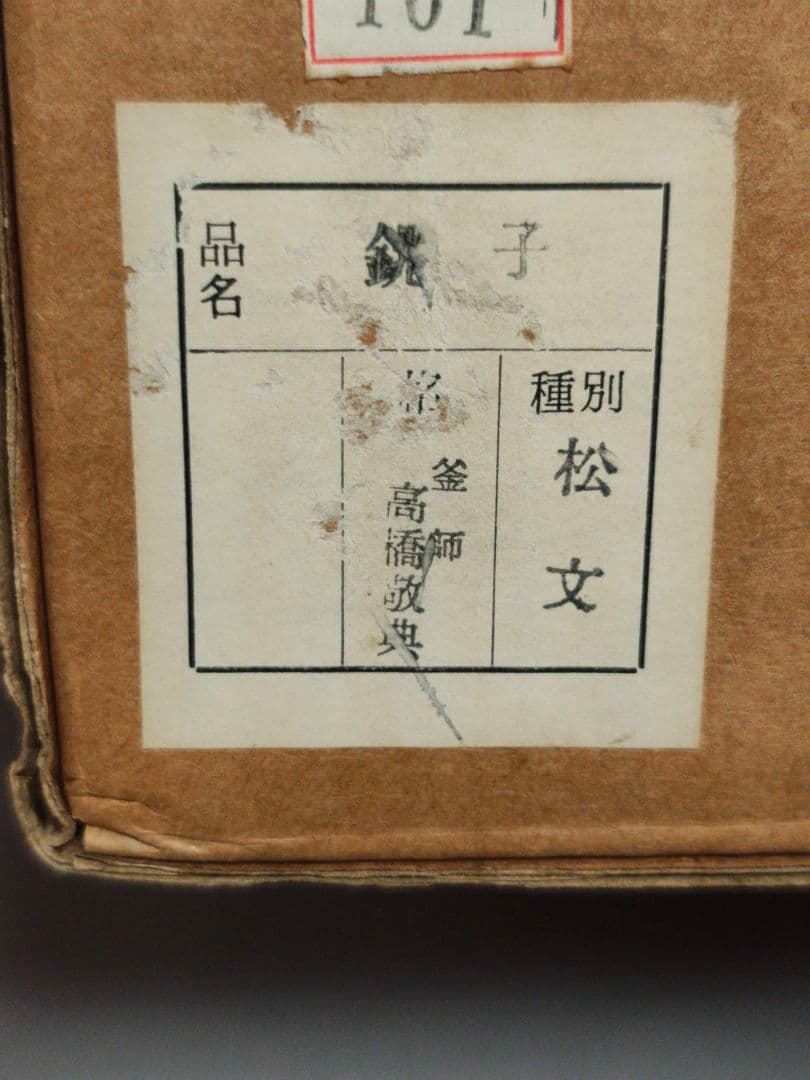 101
品名
銚子
種別
松文
格
釜師
高橋敬典